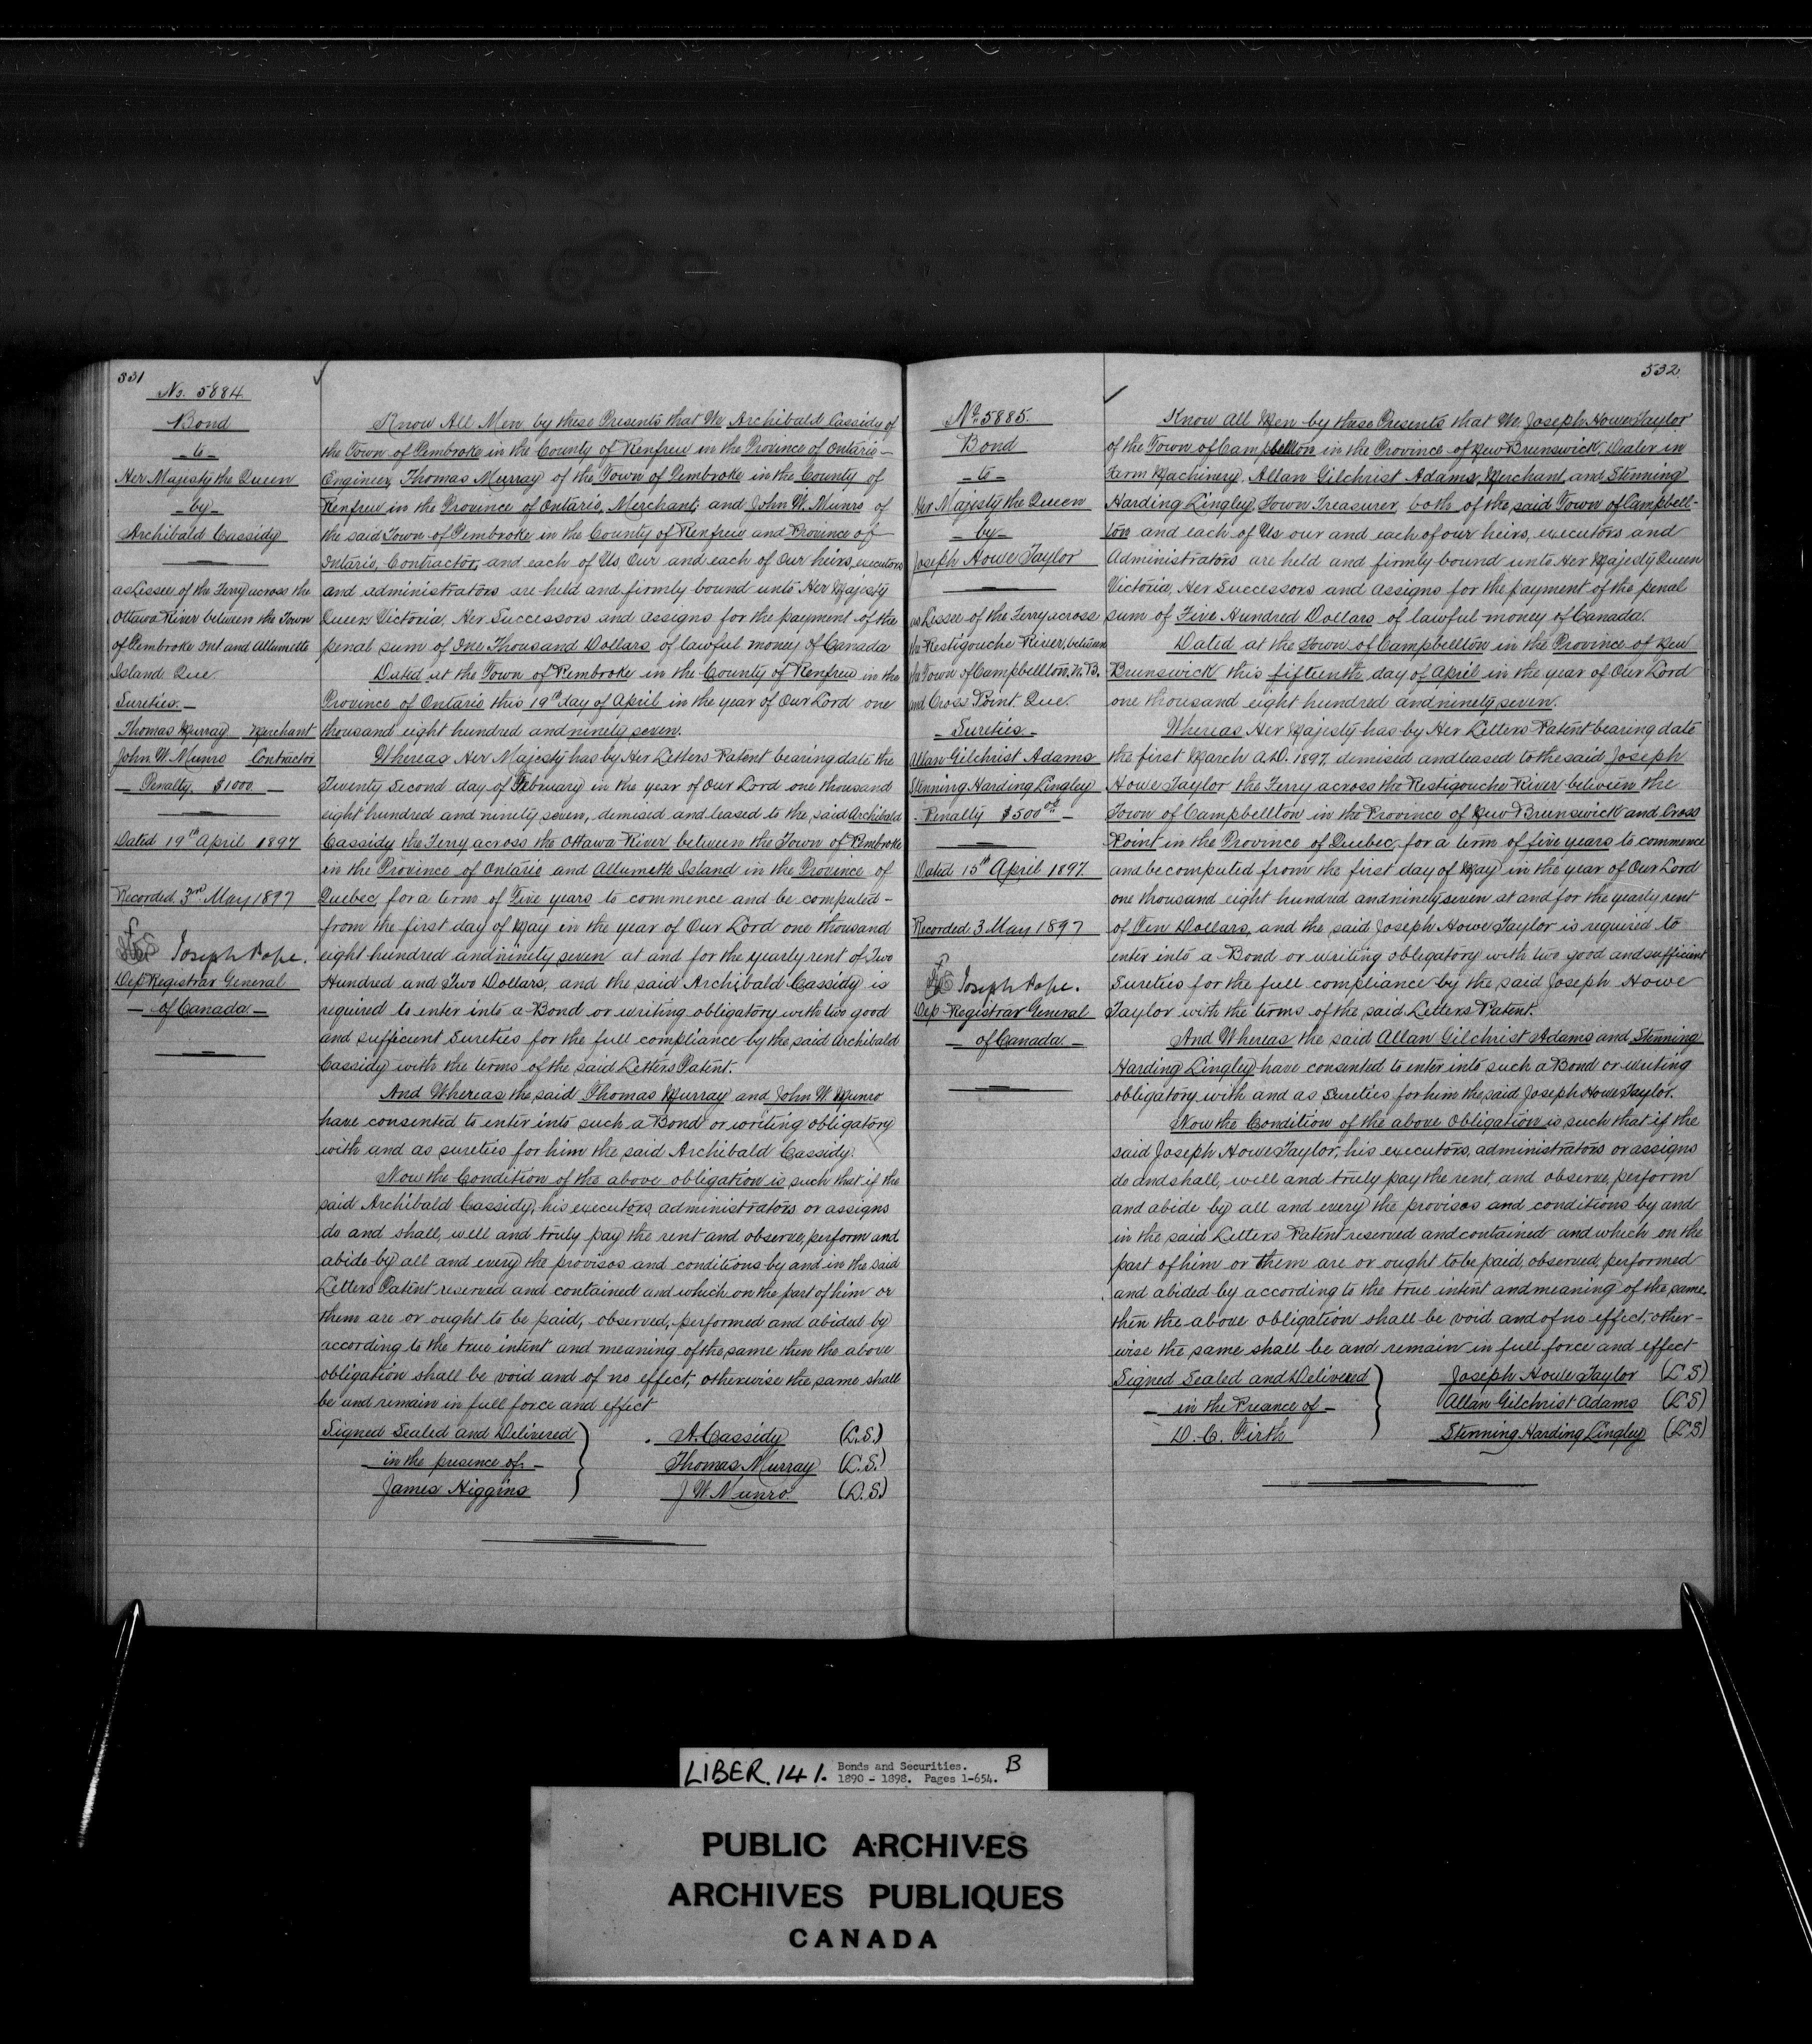 331
No. 5884
Bond
to
Her Majesty the Queen
by
Archibald Cassidy
as Lessee of the Ferry across the
Ottawa River between the Town
of Pembroke Ont and Allumette
Island Que.
Sureties.
Thomas Murray Merchant
John W. Munro Contractor
Penalty $1000
Dated 19th April 1897
Recorded 3rd May 1897
Joseph Pope.
Dep Registrar General
of Canada
Know All Men by these Presents that We, Archibald Cassidy of
the Town of Pembroke in the County of Renfrew in the Province of Ontario -
Engineer, Thomas Murray of the Town of Pembroke in the County of
Renfrew in the Province of Ontario, Merchant; and John W. Munro of
the said Town of Pembroke in the County of Renfrew and Province of
Ontario, Contractor, and each of Us, Our and each of Our heirs, executors
and administrators are held and firmly bound unto Her Majesty
Queen Victoria, Her Successors and assigns for the payment of the
penal sum of One Thousand Dollars of lawful money of Canada
Dated at the Town of Pembroke in the County of Renfrew in the
Province of Ontario this 19th day of April in the year of Our Lord one
thousand eight hundred and ninety seven.
Whereas Her Majesty has by Her Letters Patent bearing date the
Twenty Second day of February in the year of Our Lord one thousand
eight hundred and ninety seven, demised and leased to the said Archibald
Cassidy the Ferry across the Ottawa River between the Town of Pembroke
in the Province of Ontario and Allumette Island in the Province of
Quebec, for a term of Five years to commence and be computed -
from the first day of May in the year of Our Lord one thousand
eight hundred and ninety seven at and for the yearly rent of Two
Hundred and Two Dollars, and the said Archibald Cassidy is
required to enter into a Bond or writing obligatory with two good
and sufficient Sureties for the full compliance by the said Archibald
Cassidy with the terms of the said Letters Patent.
And Whereas the said Thomas Murray and John W Munro
have consented to enter into such a Bond or writing obligatory
with and as sureties for him the said Archibald Cassidy.
Now the Condition of the above obligation is such that if the
said Archibald Cassidy, his executors, administrators or assigns
do and shall, well and truly pay the rent and observe, perform and
abide by all and every the provisos and conditions by and in the said
Letters Patent reserved and contained and which on the part of him or
them are or ought to be paid, observed, performed and abided by
according to the true intent and meaning of the same then the above
obligation shall be void and of no effect, otherwise the same shall
be and remain in full force and effect
Signed Sealed and Delivered
in the presence of -
James Higgins
A. Cassidy (L.S.)
Thomas Murray (L.S.)
J W. Munro (L.S.)
532
No 5885.
Bond
to
Her Majesty the Queen
by
Joseph Howe Taylor
as Lessee of the Ferry across
the Restigouche River, between
the Town of Campbellton, N.B.
and Cross Point. Que.
Sureties
Allan Gilchrist Adams
Stenning Harding Lingley
Penalty $500 00
Dated 15th April 1897
Recorded 3 May 1897
Joseph Pope.
Dep Registrar General
of Canada
Know all Men by these Presents that We Joseph Howe Taylor
of the Town of Campbellton in the Province of New Brunswick, Dealer in
Farm Machinery, Allan Gilchrist Adams, Merchant, and Stenning
Harding Lingley, Town Treasurer, both of the said Town of Campbell-
ton and each of Us our and each of our heirs, executors and
Administrators are held and firmly bound unto Her Majesty Queen
Victoria, Her Successors and Assigns for the payment of the penal
sum of Five Hundred Dollars of lawful money of Canada.
Dated at the Town of Campbellton in the Province of New
Brunswick this fifteenth day of April in the year of Our Lord
one thousand eight hundred and ninety seven.
Whereas Her Majesty has by Her Letters Patent bearing date
the first March A.D. 1897 demised and leased to the said Joseph
Howe Taylor the Ferry across the Restigouche River between the
Town of Campbellton in the Province of New Brunswick and Cross
Point in the Province of Quebec, for a term of five years to commence
and be computed from the first day of May in the year of Our Lord
one thousand eight hundred and ninety seven at and for the yearly rent
of Ten Dollars, and the said Joseph Howe Taylor is required to
enter into a Bond or writing obligatory with two good and sufficient
Sureties for the full compliance by the said Joseph Howe
Taylor with the terms of the said Letters Patent.
And Whereas the said Allan Gilchrist Adams and Stenning
Harding Lingley have consented to enter into such a Bond or writing
obligatory with and as Sureties for him the said Joseph Howe Taylor.
Now the Condition of the above Obligation is such that if the
said Joseph Howe Taylor, his executors, administrators or assigns
do and shall, will and truly pay the rent, and observe, perform
and abide by all and every the provisos and conditions by and
in the said Letters Patent reserved and contained and which on the
part of him or them are or ought to be paid, observed, performed
and abided by according to the true intent and meaning of the same,
then the above obligation shall be void and of no effect, other-
wise the same shall be and remain in full force and effect
Signed Sealed and Delivered
in the Presance of -
D. C. Firth
Joseph Howe Taylor (L S)
Allan Gilchrist Adams (L S)
Stenning Harding Lingley (L S)
LIBER. 141. Bonds and Securities. B
1890 - 1898. Pages 1-654.
PUBLIC ARCHIVES
ARCHIVES PUBLIQUES
CANADA